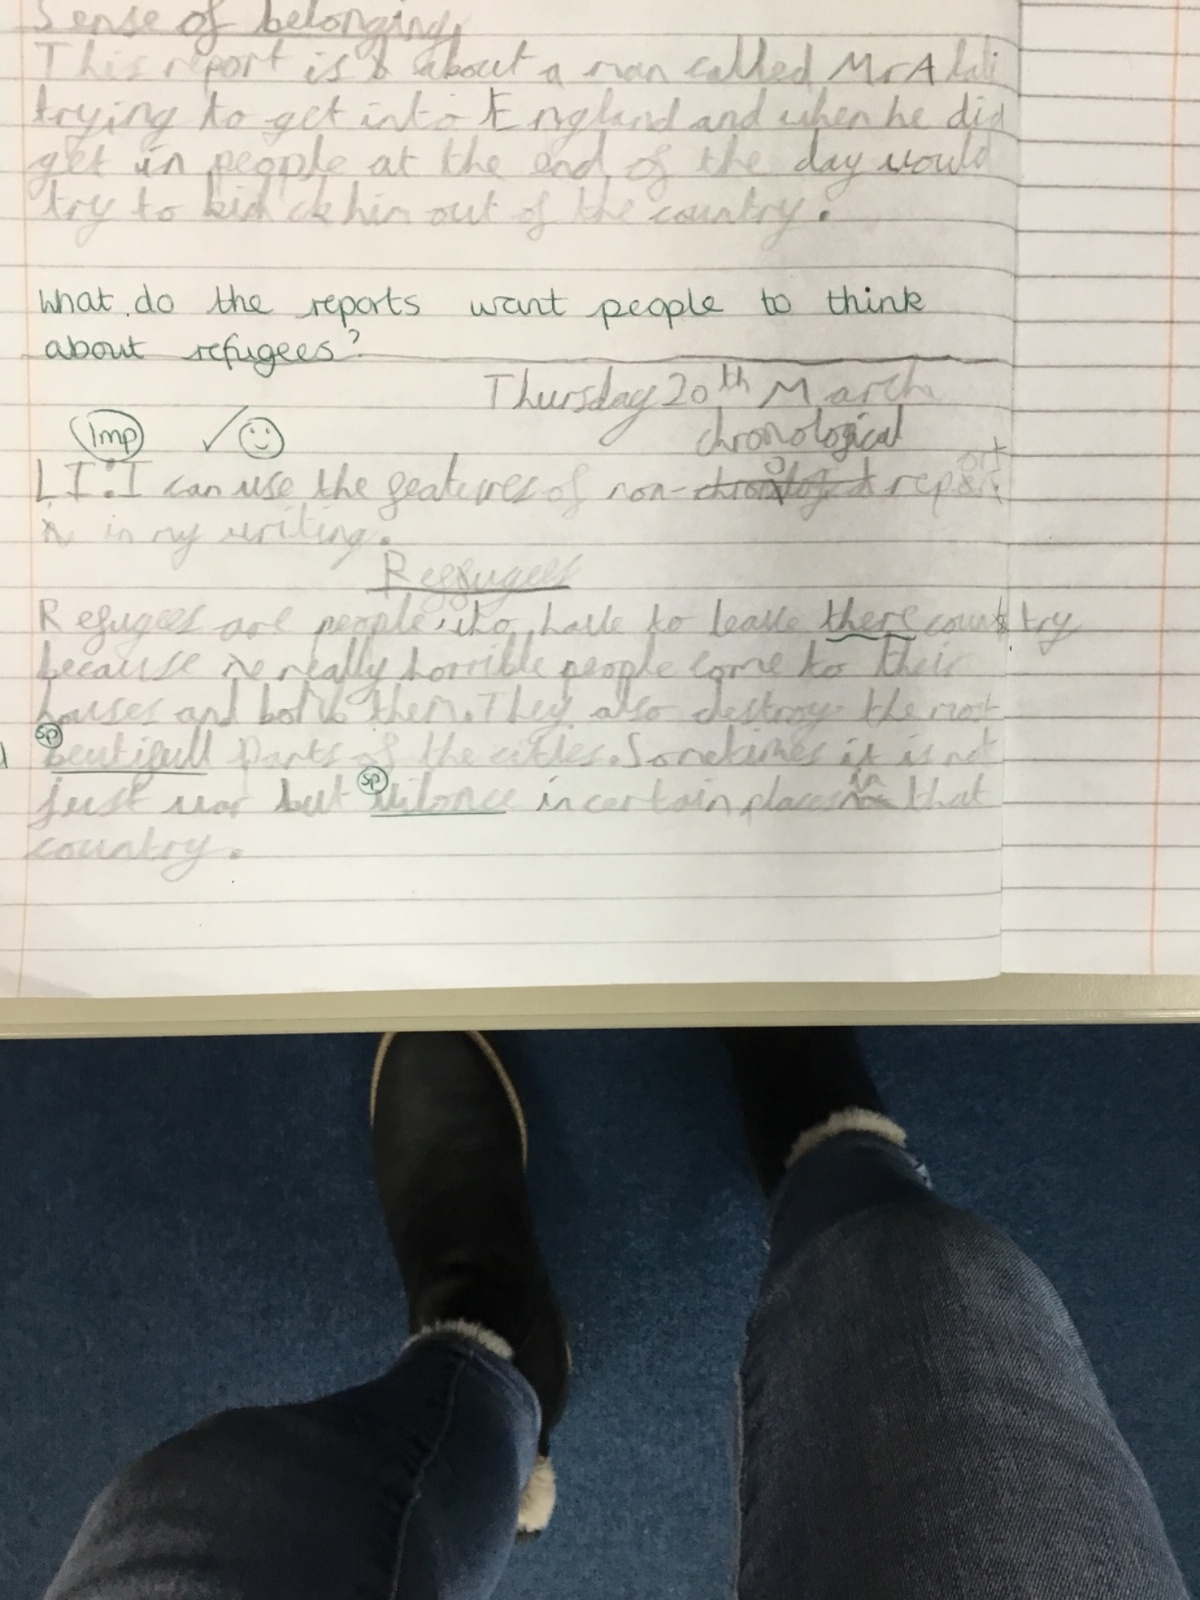 Sense of belonging
This report is about a man called Mr A
trying to get into England and when he did
get in people at the end of the day would
try to kick him out of the country.
What do the reports want people to think
about refugees?
Thursday 20th March
chronological
Imp
L I: I can use the features of non- report
in my writing.
Reffugees
Refugees are people, who have to leave there country
because really horrible people come to their
houses and bomb them. They also destroy the most
sp
beutifull parts of the cities. Sometimes it is not
sp in
just war but vilonce in certain places that
country.